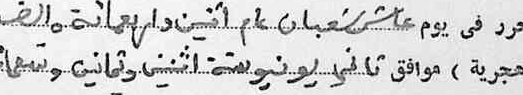 حرر فى يوم عاشر شعبان عام اثنين واربعمائة والف
هجرية ) موافق ثاني يونيو سنة اثنين وثمانين وتسعمائة